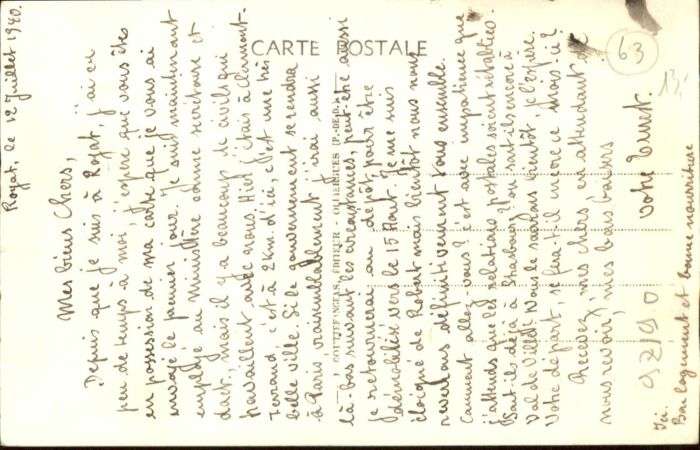 CARTE POSTALE
63
13,
Royat, le 12 Juillet 1940.
Mes biens Chers,
Depuis que je suis à Royat, j'ai eu
peu de temps à moi, j'espère que vous êtes
en possession de ma carte que je vous ai
envoyé le premier jour. Je suis maintenant
employé au ministère comme secrétaire et
mais il y a beaucoup de civils qui
travaillent avec nous. Hier j'étais à Clermont-
Ferrand, c'est à 2 km. d'ici, c'est une très
belle ville. Si le gouvernement se rendra
à Paris vraisemblablement j'irai aussi
là-bas suivant les circonstances, peut-être aussi
je retournerai au dépôt pour être
démobilisé vers le 15 Août. Je me suis
éloigné de Robert mais bientôt nous nous
reverrons définitivement tous ensemble.
Comment allez-vous? c'est avec impatience que
j'attends que les relations postales soient rétablies.
Part-il, déjà à Strasbourg ou sont-ils encore à
Val de Villé? Nous le saurons bientôt, je l'espère.
Votre départ, se fera-t-il encore ce mois-ci?
Recevez, mes chers, en attendant de
nous revoir, mes bons baisers
votre Ernest.
Ici:
Bon logement et bonne nourriture
GOUTTEFANGEAS, ÉDITEUR - OLLIERGUES (P.-DE-D.)